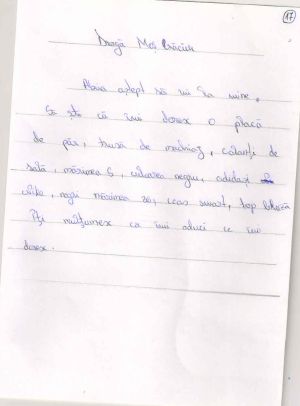 17
Dragă Moș Crăciun
Abia aștept să vii la mine.
Să știi că îmi doresc o placă
de păr, trusă de machiaj, colanți de
sală, mărimea S, culoarea negru, adidași
nike, negri mărimea 38, ceas smart, top bluză
Îți mulțumesc că îmi aduci ce îmi
doresc.